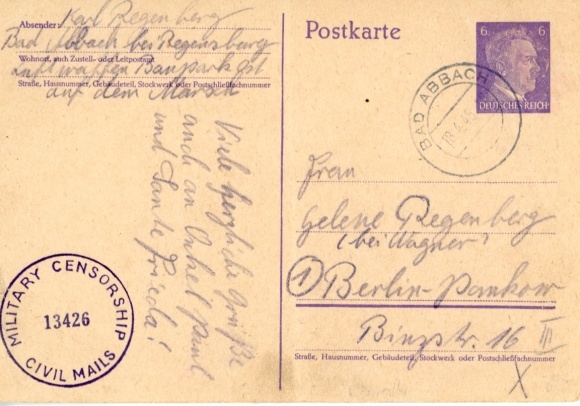 Absender: Karl Regenberg
Bad Abbach bei Regensburg
Wohnort, auch Zustell- oder Leitpostamt
Straße, Hausnummer, Gebäudeteil, Stockwerk oder Postschließfachnummer
auf dem Marsch
Viele herzliche Grüße
auch an Onkel Paul
und Tante Frieda!
MILITARY CENSORSHIP
13426
CIVIL MAILS
Postkarte
6 6
DEUTSCHES REICH
BAD ABBACH
Frau
Helene Regenberg
(bei Wagner)
1 Berlin-Pankow
Binzstr. 16 III
Straße, Hausnummer, Gebäudeteil, Stockwerk oder Postschließfachnummer
X